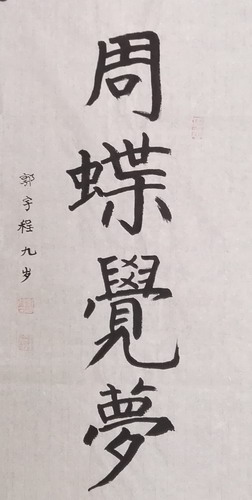 周蝶覺夢
郭宇程九岁